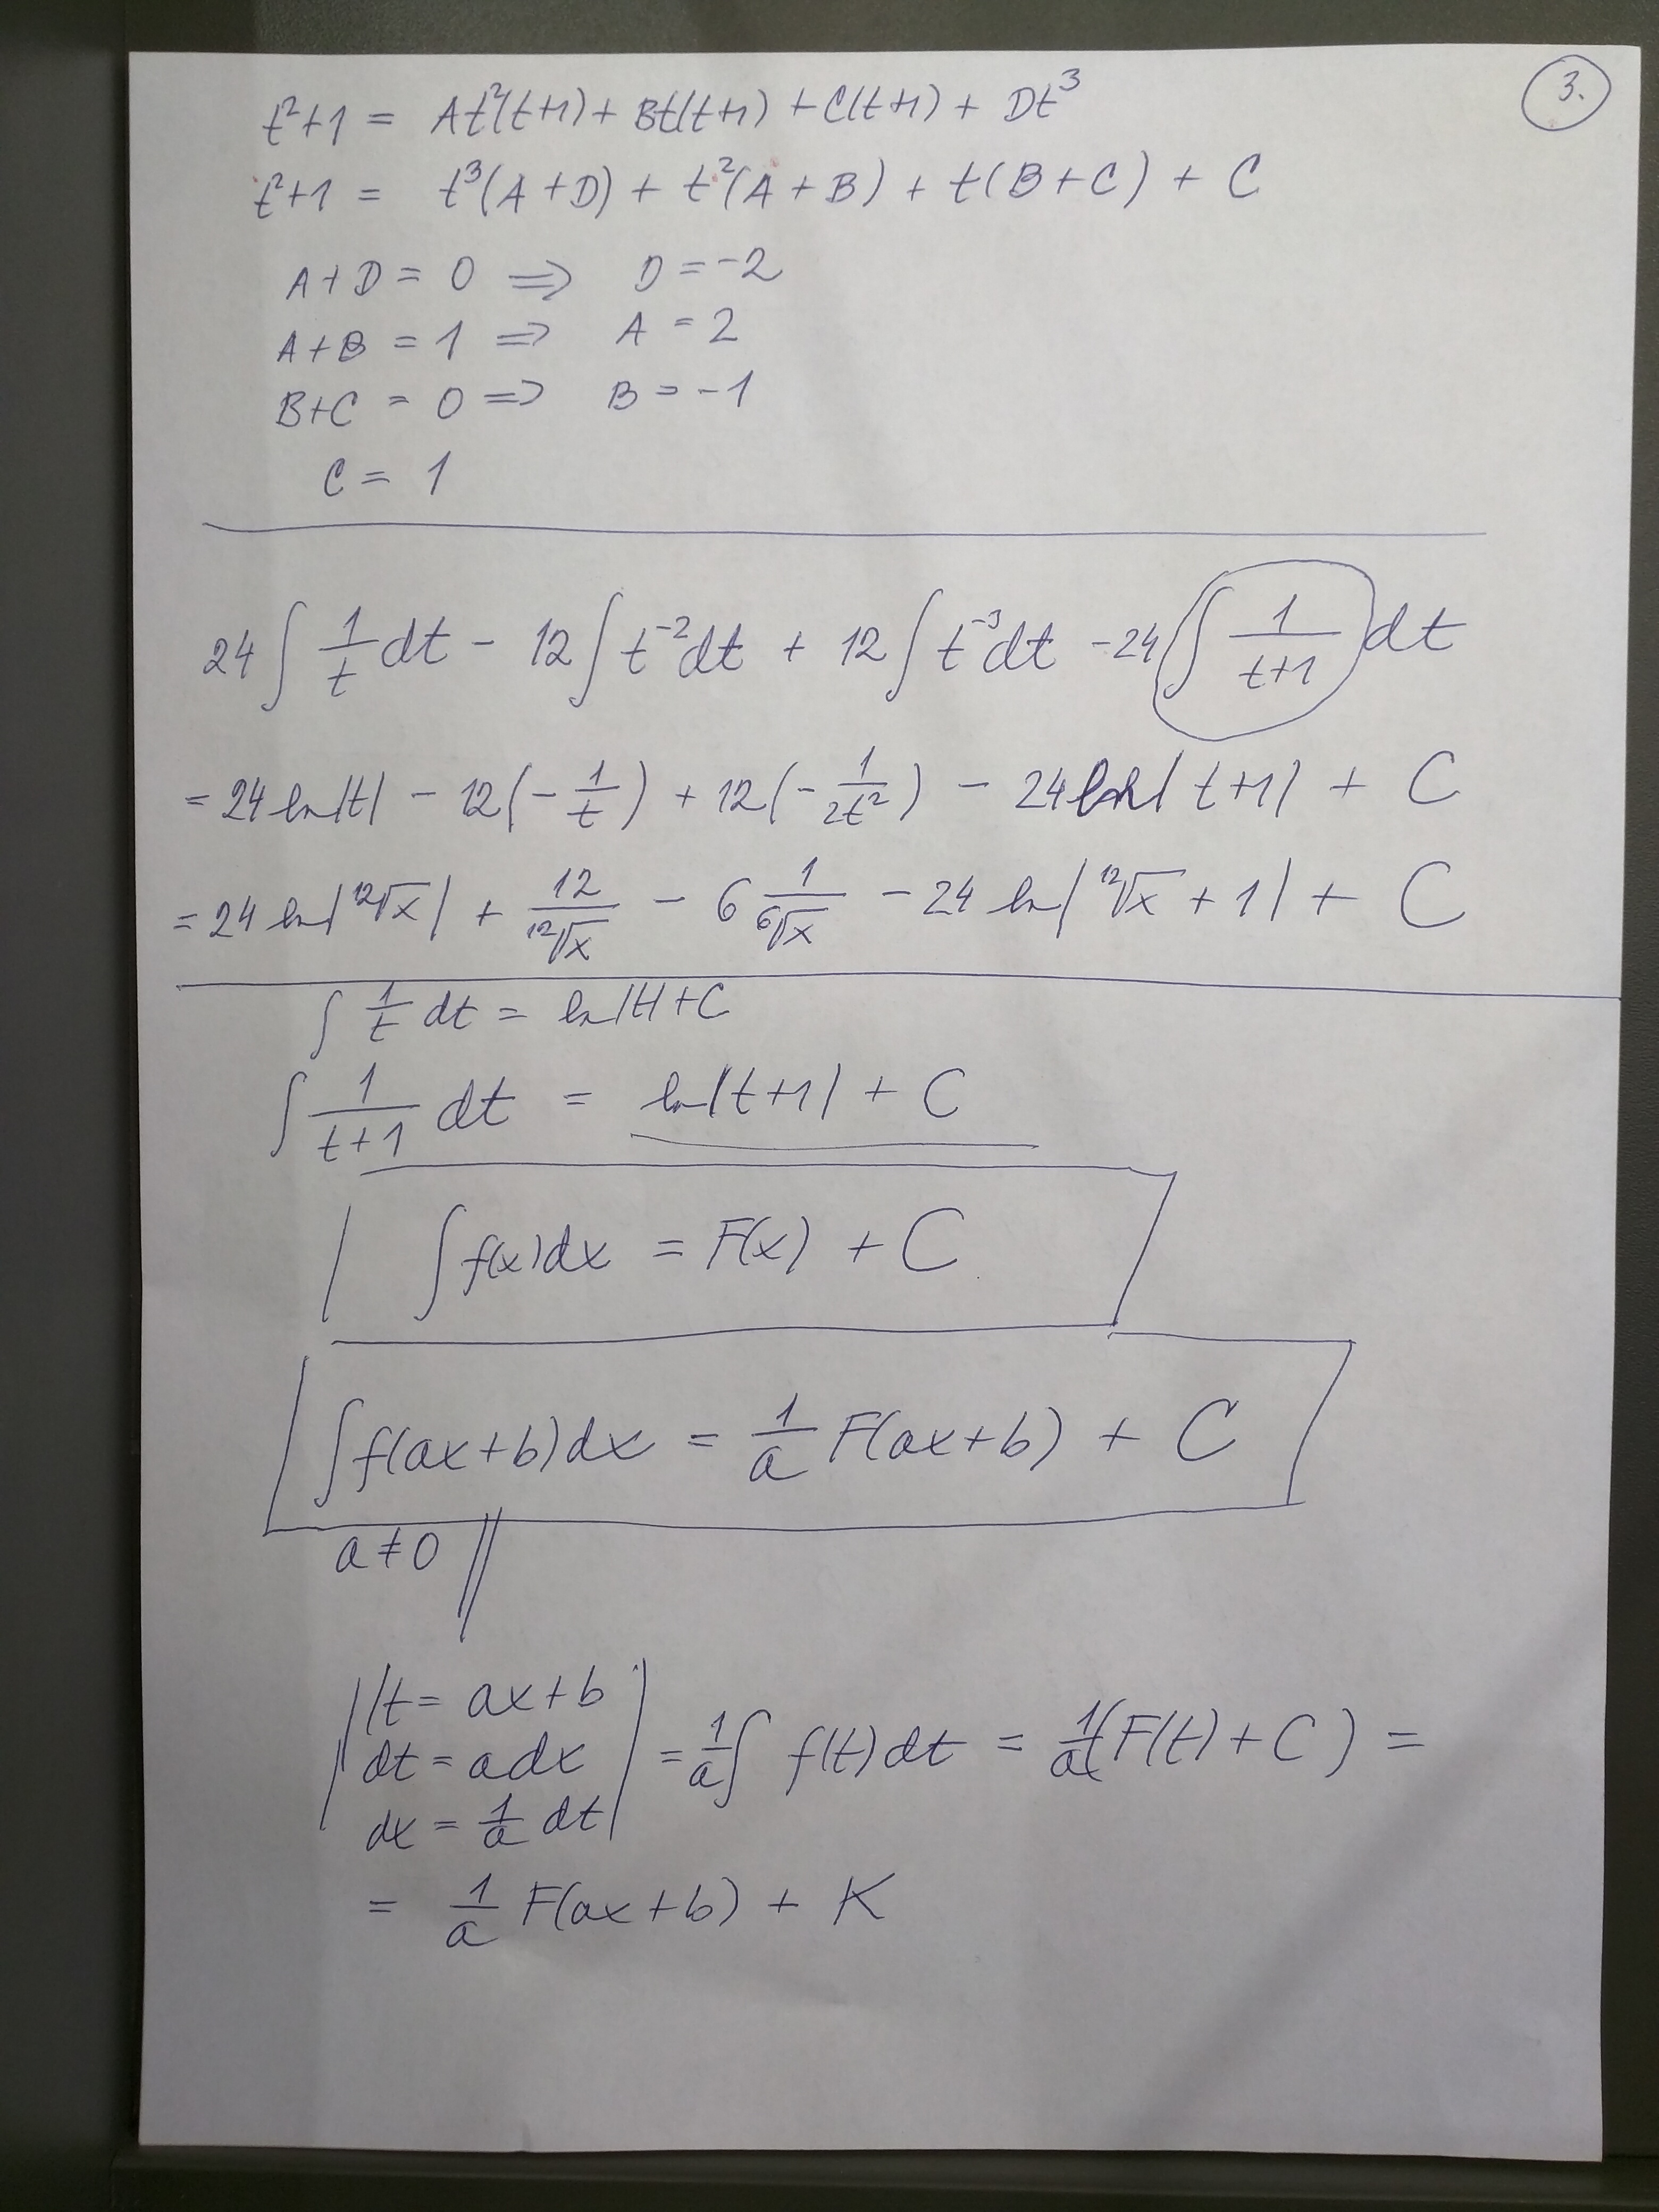 3.
t²+1 = At²(t+1) + Bt(t+1) + C(t+1) + Dt³
t²+1 = t³(A+D) + t²(A+B) + t(B+C) + C
A+D = 0 ⟹ D = -2
A+B = 1 ⟹ A = 2
B+C = 0 ⟹ B = -1
C = 1
24∫ 1/t dt - 12∫ t⁻² dt + 12∫ t⁻³ dt - 24∫ 1/(t+1) dt
= 24 ln|t| - 12(-1/t) + 12(-1/(2t²)) - 24 ln|t+1| + C
= 24 ln|¹²√x| + 12/¹²√x - 6 1/⁶√x - 24 ln|¹²√x + 1| + C
∫ 1/t dt = ln|t| + C
∫ 1/(t+1) dt = ln|t+1| + C
∫ f(x)dx = F(x) + C
∫ f(ax+b)dx = 1/a F(ax+b) + C
a≠0
t = ax+b
dt = a dx
dx = 1/a dt
= 1/a ∫ f(t)dt = 1/a (F(t) + C) =
= 1/a F(ax+b) + K